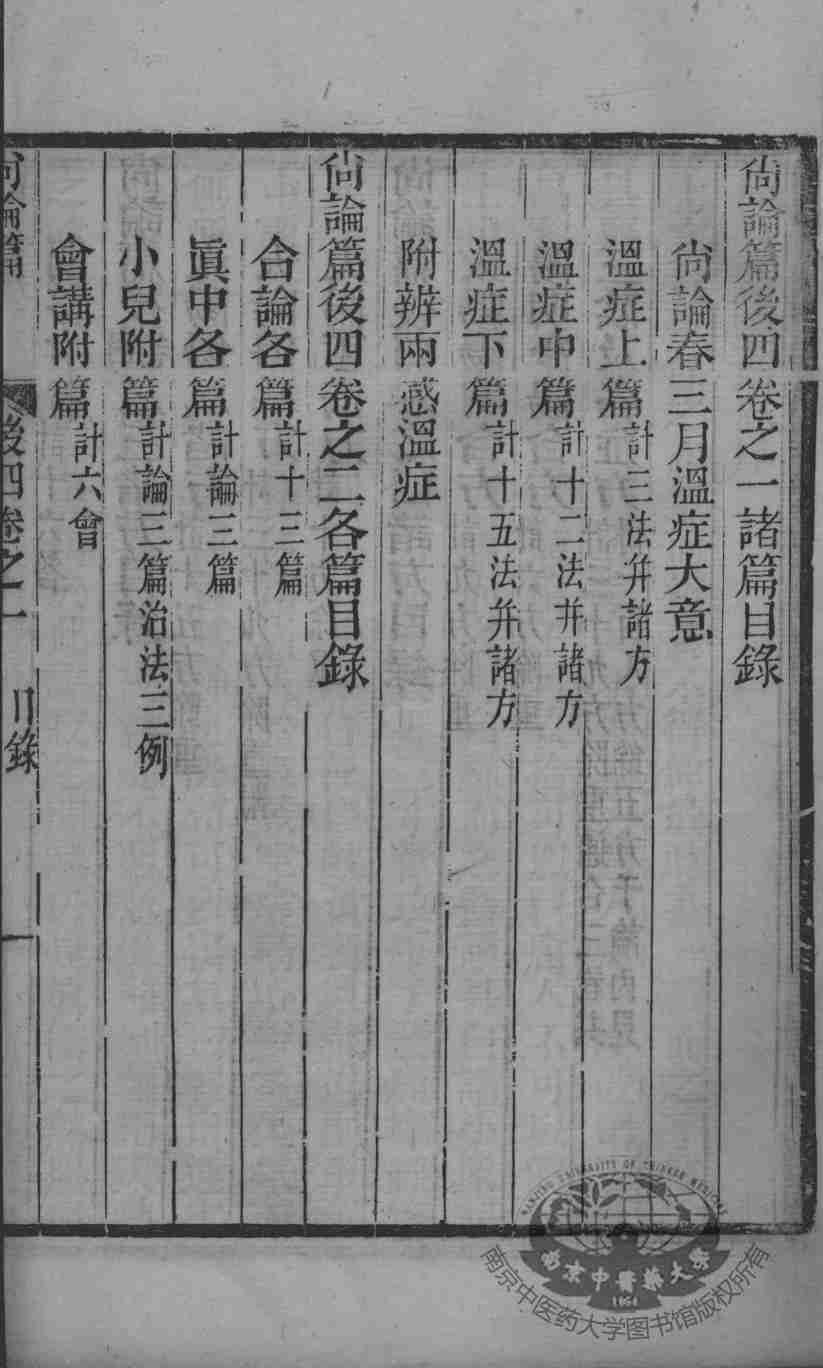 尙論篇後四卷之一諸篇目錄
尙論春三月溫症大意
溫症上篇計三法幷諸方
溫症中篇計十二法幷諸方
溫症下篇計十五法幷諸方
附辨兩感溫症
尙論篇後四卷之二各篇目錄
合論各篇計十三篇
眞中各篇計論三篇
小兒附篇計論三篇治法三例
會講附篇計六會
尙論篇 後四卷之一 目錄 一
NANJING UNIVERSITY OF CHINESE MEDICINE
南京中醫藥大學
1954
南京中医药大学图书馆版权所有